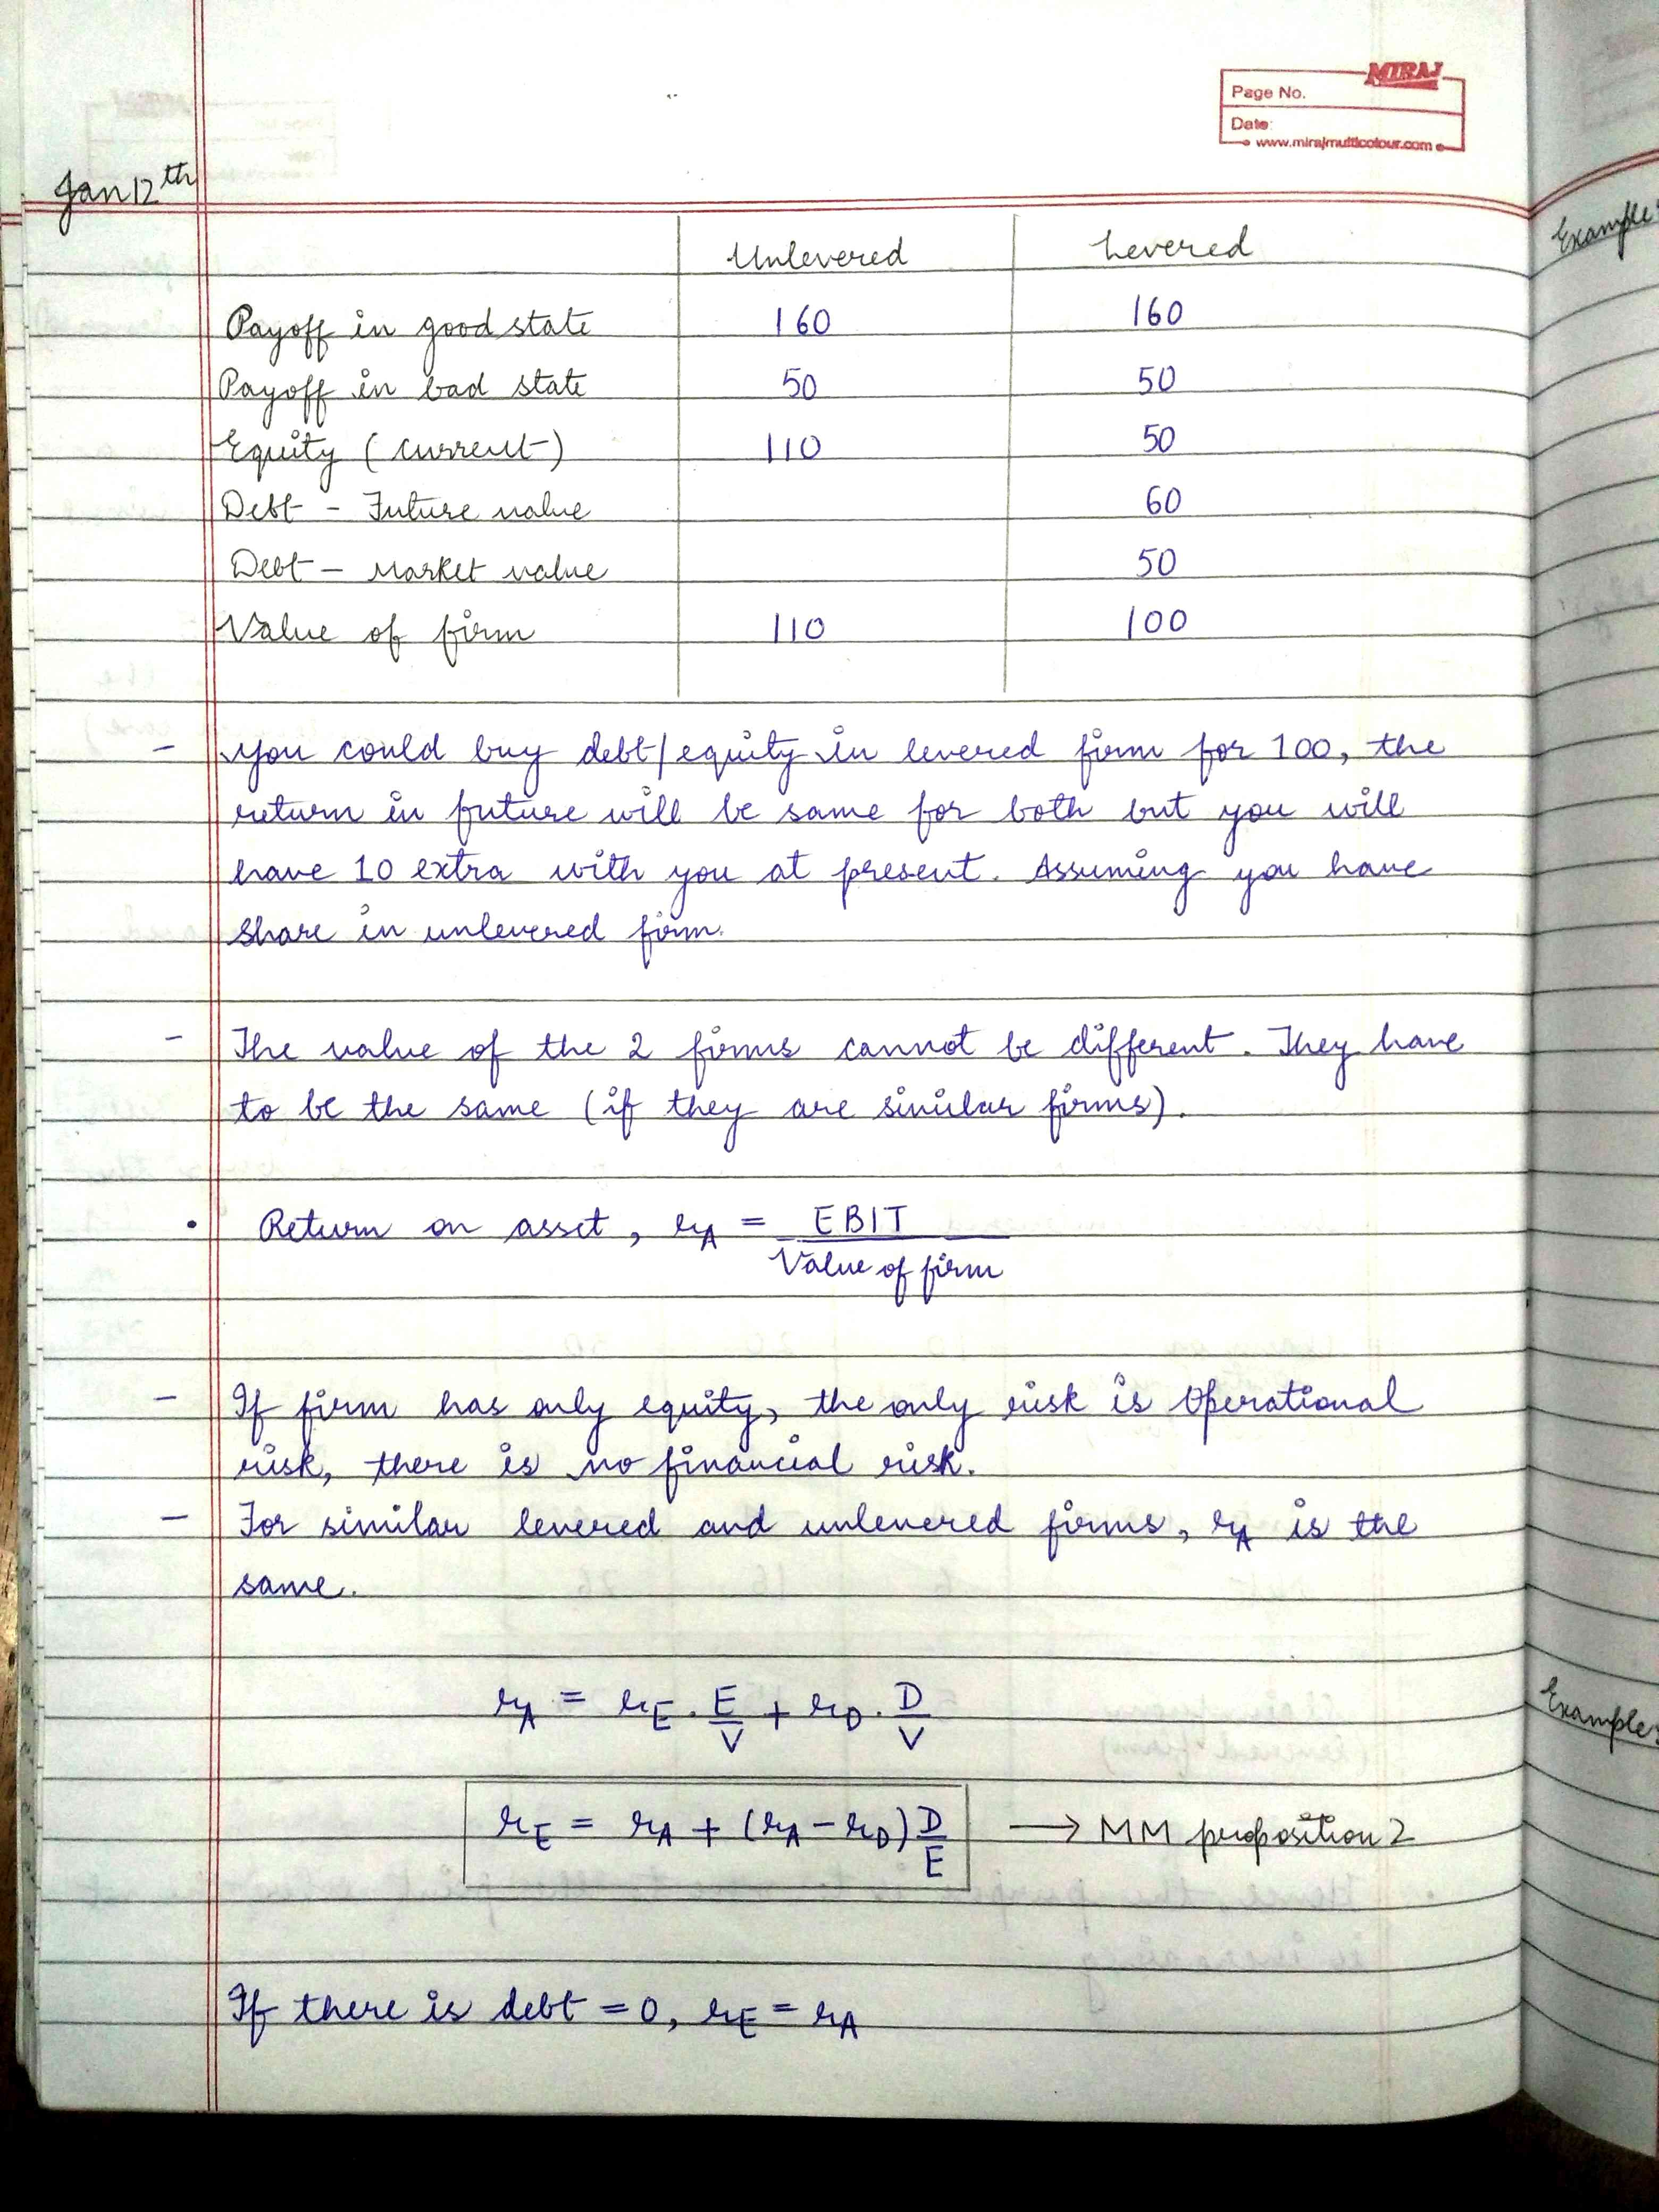 MIRAJ
Page No.
Date:
www.mirajmulticolour.com
Jan 12th
Unlevered Levered
Payoff in good state 160 160
Payoff in bad state 50 50
Equity (current) 110 50
Debt - Future value 60
Debt - Market value 50
Value of firm 110 100
- You could buy debt/equity in levered firm for 100, the
return in future will be same for both but you will
have 10 extra with you at present. Assuming you have
share in unlevered firm.
- The value of the 2 firms cannot be different. They have
to be the same (if they are similar firms).
• Return on asset, rA = EBIT
Value of firm
- If firm has only equity, the only risk is operational
risk, there is no financial risk.
- For similar levered and unlevered firms, rA is the
same.
rA = rE . E/V + rD . D/V
rE = rA + (rA - rD) D/E → MM proposition 2
If there is debt = 0, rE = rA
Example:
Example: